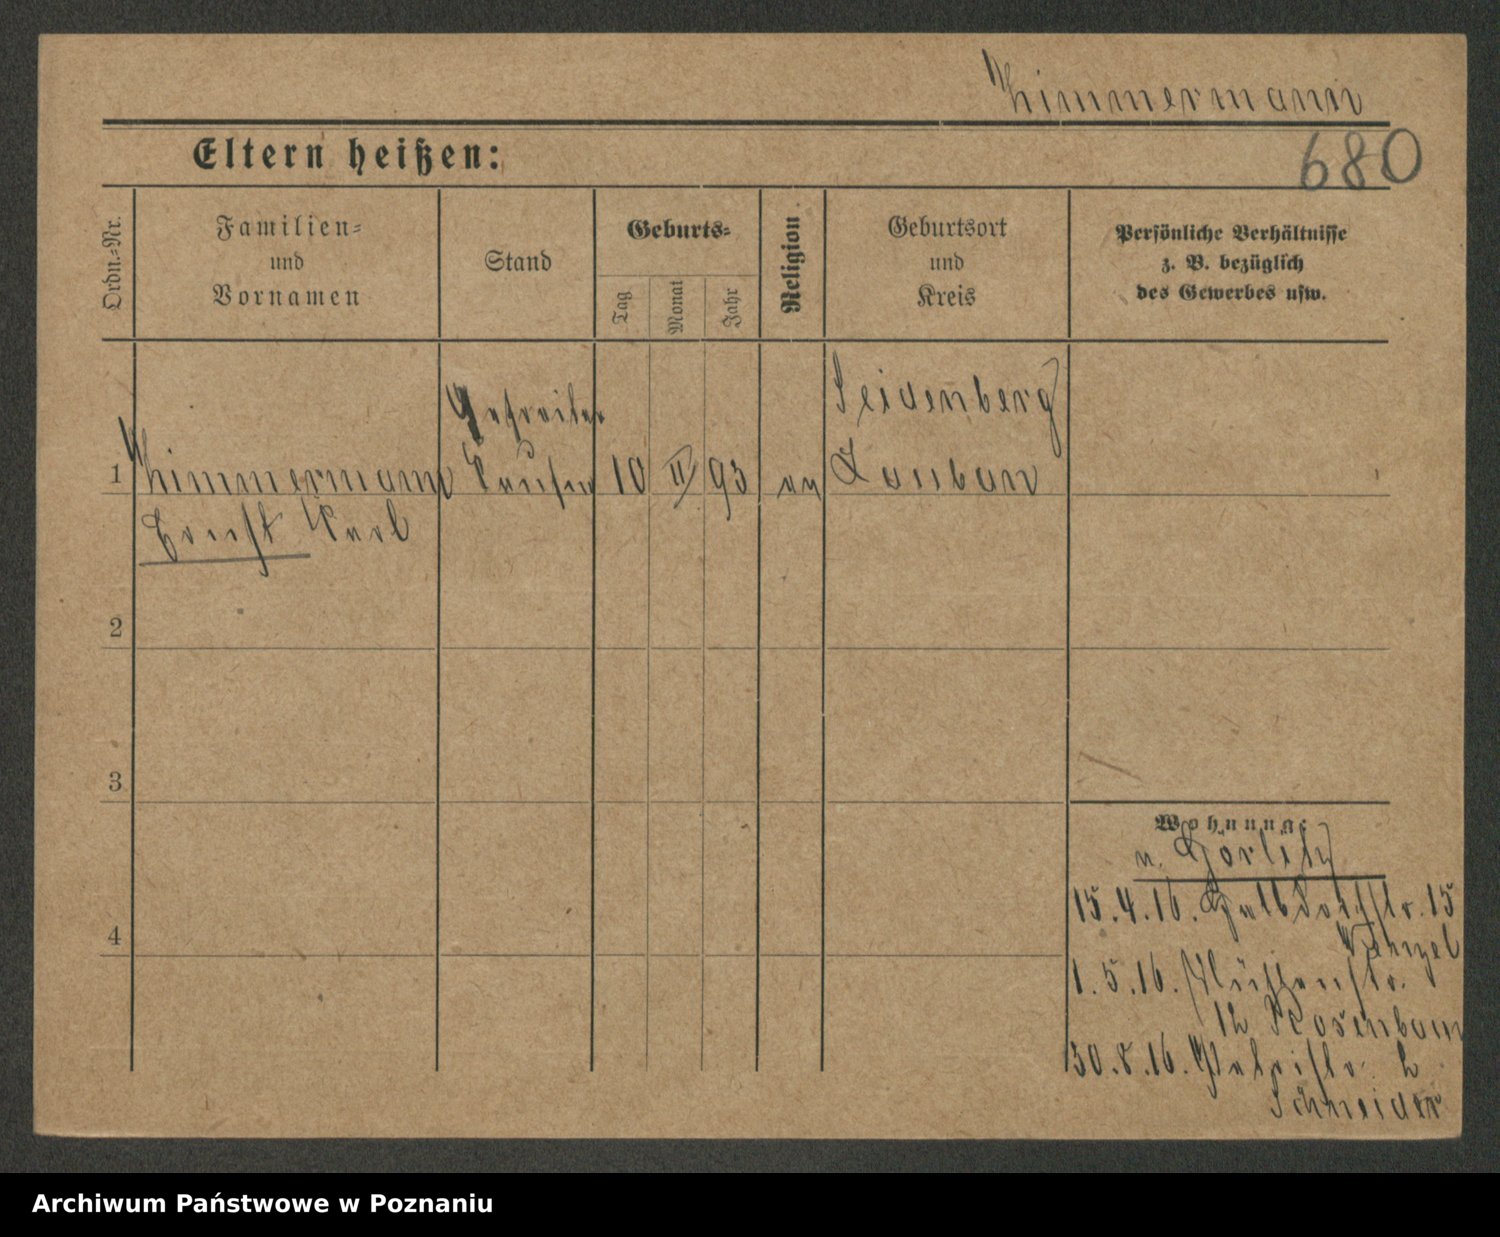 Zimmermann
680
Eltern heißen:
Ordn.=Nr.
Familien=
und
Vornamen
Stand
Geburts=
Tag
Monat
Jahr
Religion
Geburtsort
und
Kreis
Persönliche Verhältnisse
z. B. bezüglich
des Gewerbes usw.
Gefreiter
Seidenberg
1 Zimmermann 10 II 93 ev Lauban
Ernst Karl
2
3
4
Wohnung:
v. Görlitz
15.4.16. 15
Wenzel
1.5.16.
12 Rosenbaum
30.8.16. Petristr. 2
Schneider
Archiwum Państwowe w Poznaniu